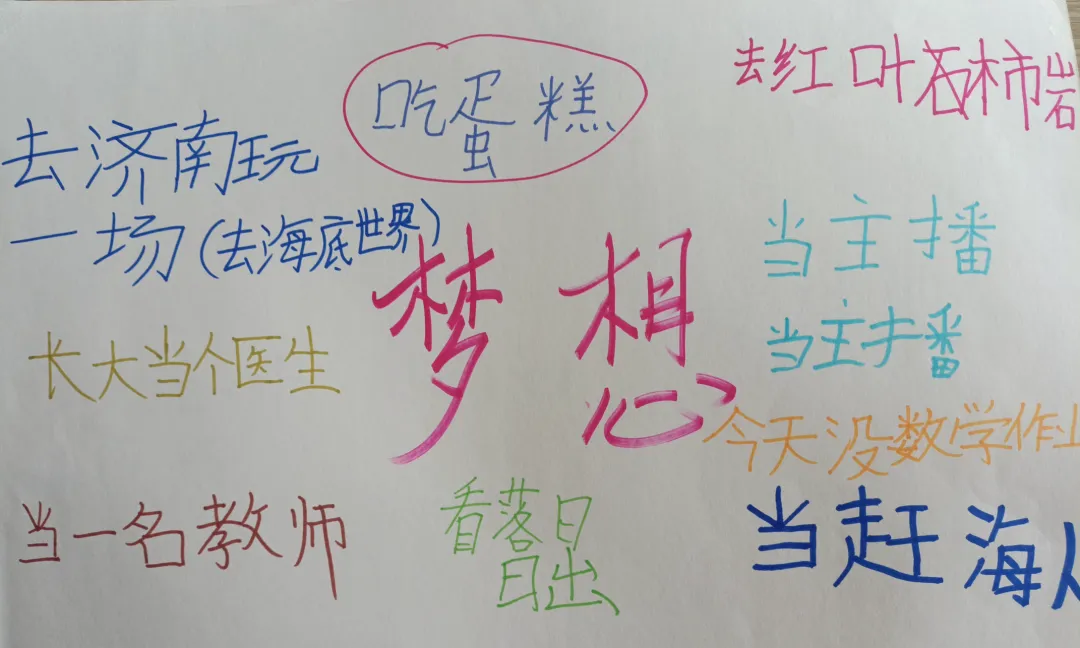 吃蛋糕
去红叶石柿岩
去济南玩
一场(去海底世界)
梦想
当主播
当主播
长大当个医生
今天没数学作业
当一名教师
看落日
日出
当赶海人